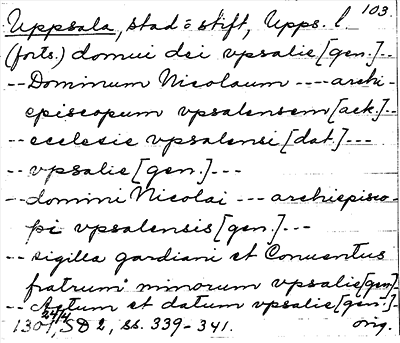 103.
Uppsala, stad o stift, Upps. l.
(forts.) domui dei vpsalie [gen.]--
-- Dominum Nicolaum ---- archi-
episcopum vpsalensem [ack.]--
-- ecclesie vpsalensi [dat.]---
-- vpsalie [gen.]---
-- domini Nicolai --- archiepisco-
pi vpsalensis [gen.]---
-- sigilla gardiani et Conuentus
fratrum minorum vpsalie [gen]-
-- Actum et datum vpsalie [gen.]-
1301 24/4, SD 2, ss. 339-341. orig.